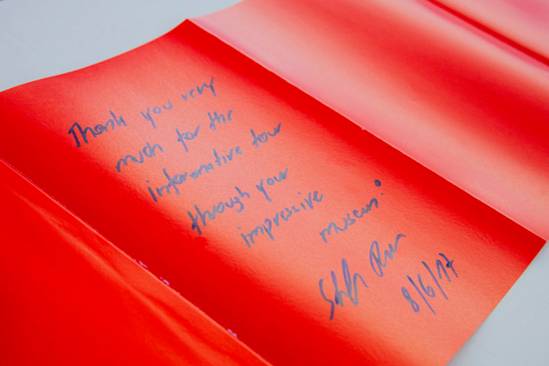 Thank you very
much for the
informative tour
through your
impressive
museum!
8/6/17